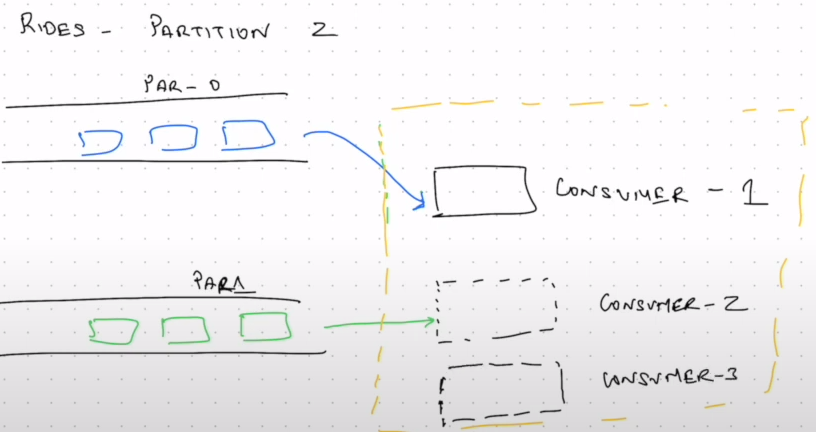 RIDES - PARTITION 2
PAR-0
CONSUMER - 1
PAR1
CONSUMER-2
CONSUMER-3